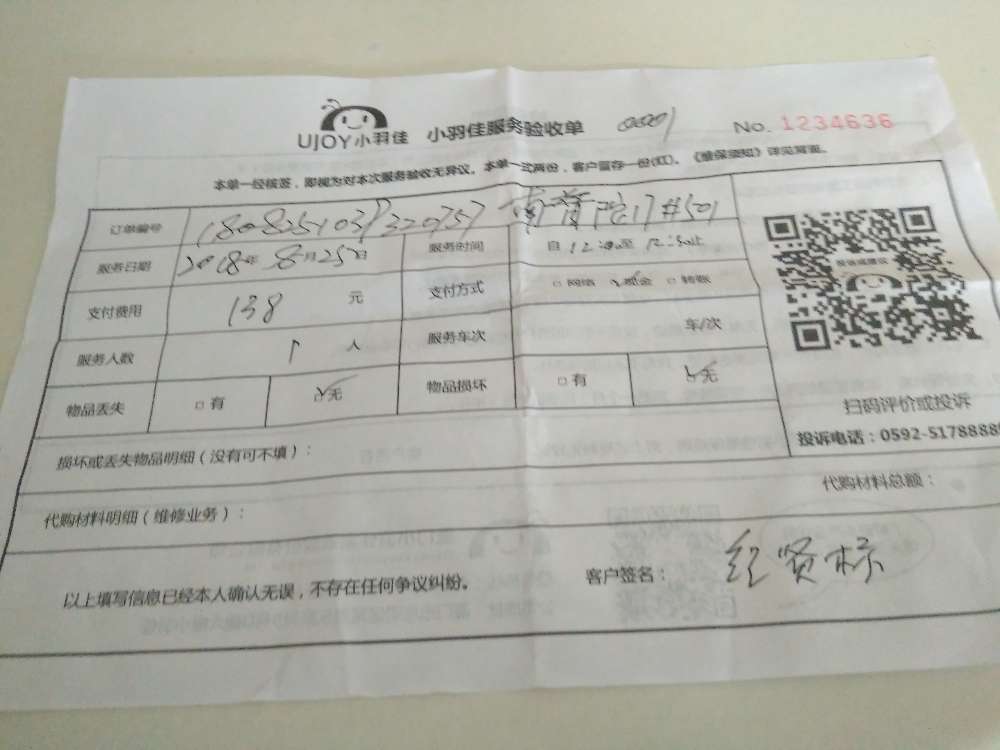 UJOY小羽佳 小羽佳服务验收单 No. 1234636
本单一经核签，即视为对本次服务验收无异议。本单一式两份，客户留存一份(红)。《维保须知》详见背面。
订单编号
服务日期 2018年 8月25日 服务时间 自 12:00至
支付费用 138 元 支付方式 □网络 ☑现金 □转账
服务人数 1 人 服务车次 车/次
物品丢失 □有 ☑无 物品损坏 □有 ☑无
扫码评价或投诉
投诉电话：0592-5178888
损坏或丢失物品明细（没有可不填）：
代购材料明细（维修业务）： 代购材料总额：
以上填写信息已经本人确认无误，不存在任何争议纠纷。 客户签名：